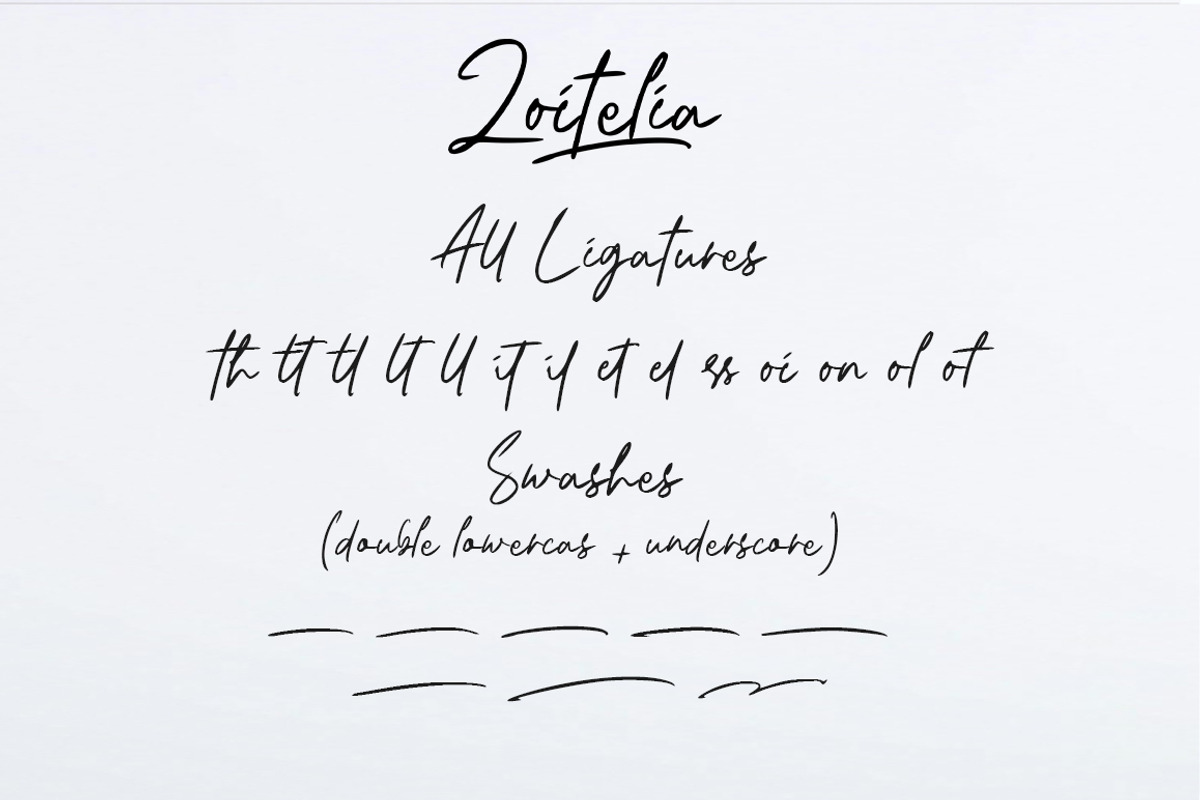 Zoitelia
All Ligatures
th tt tl lt ll it il et el ss oi on ol ot
Swashes
(double lowercas + underscore)